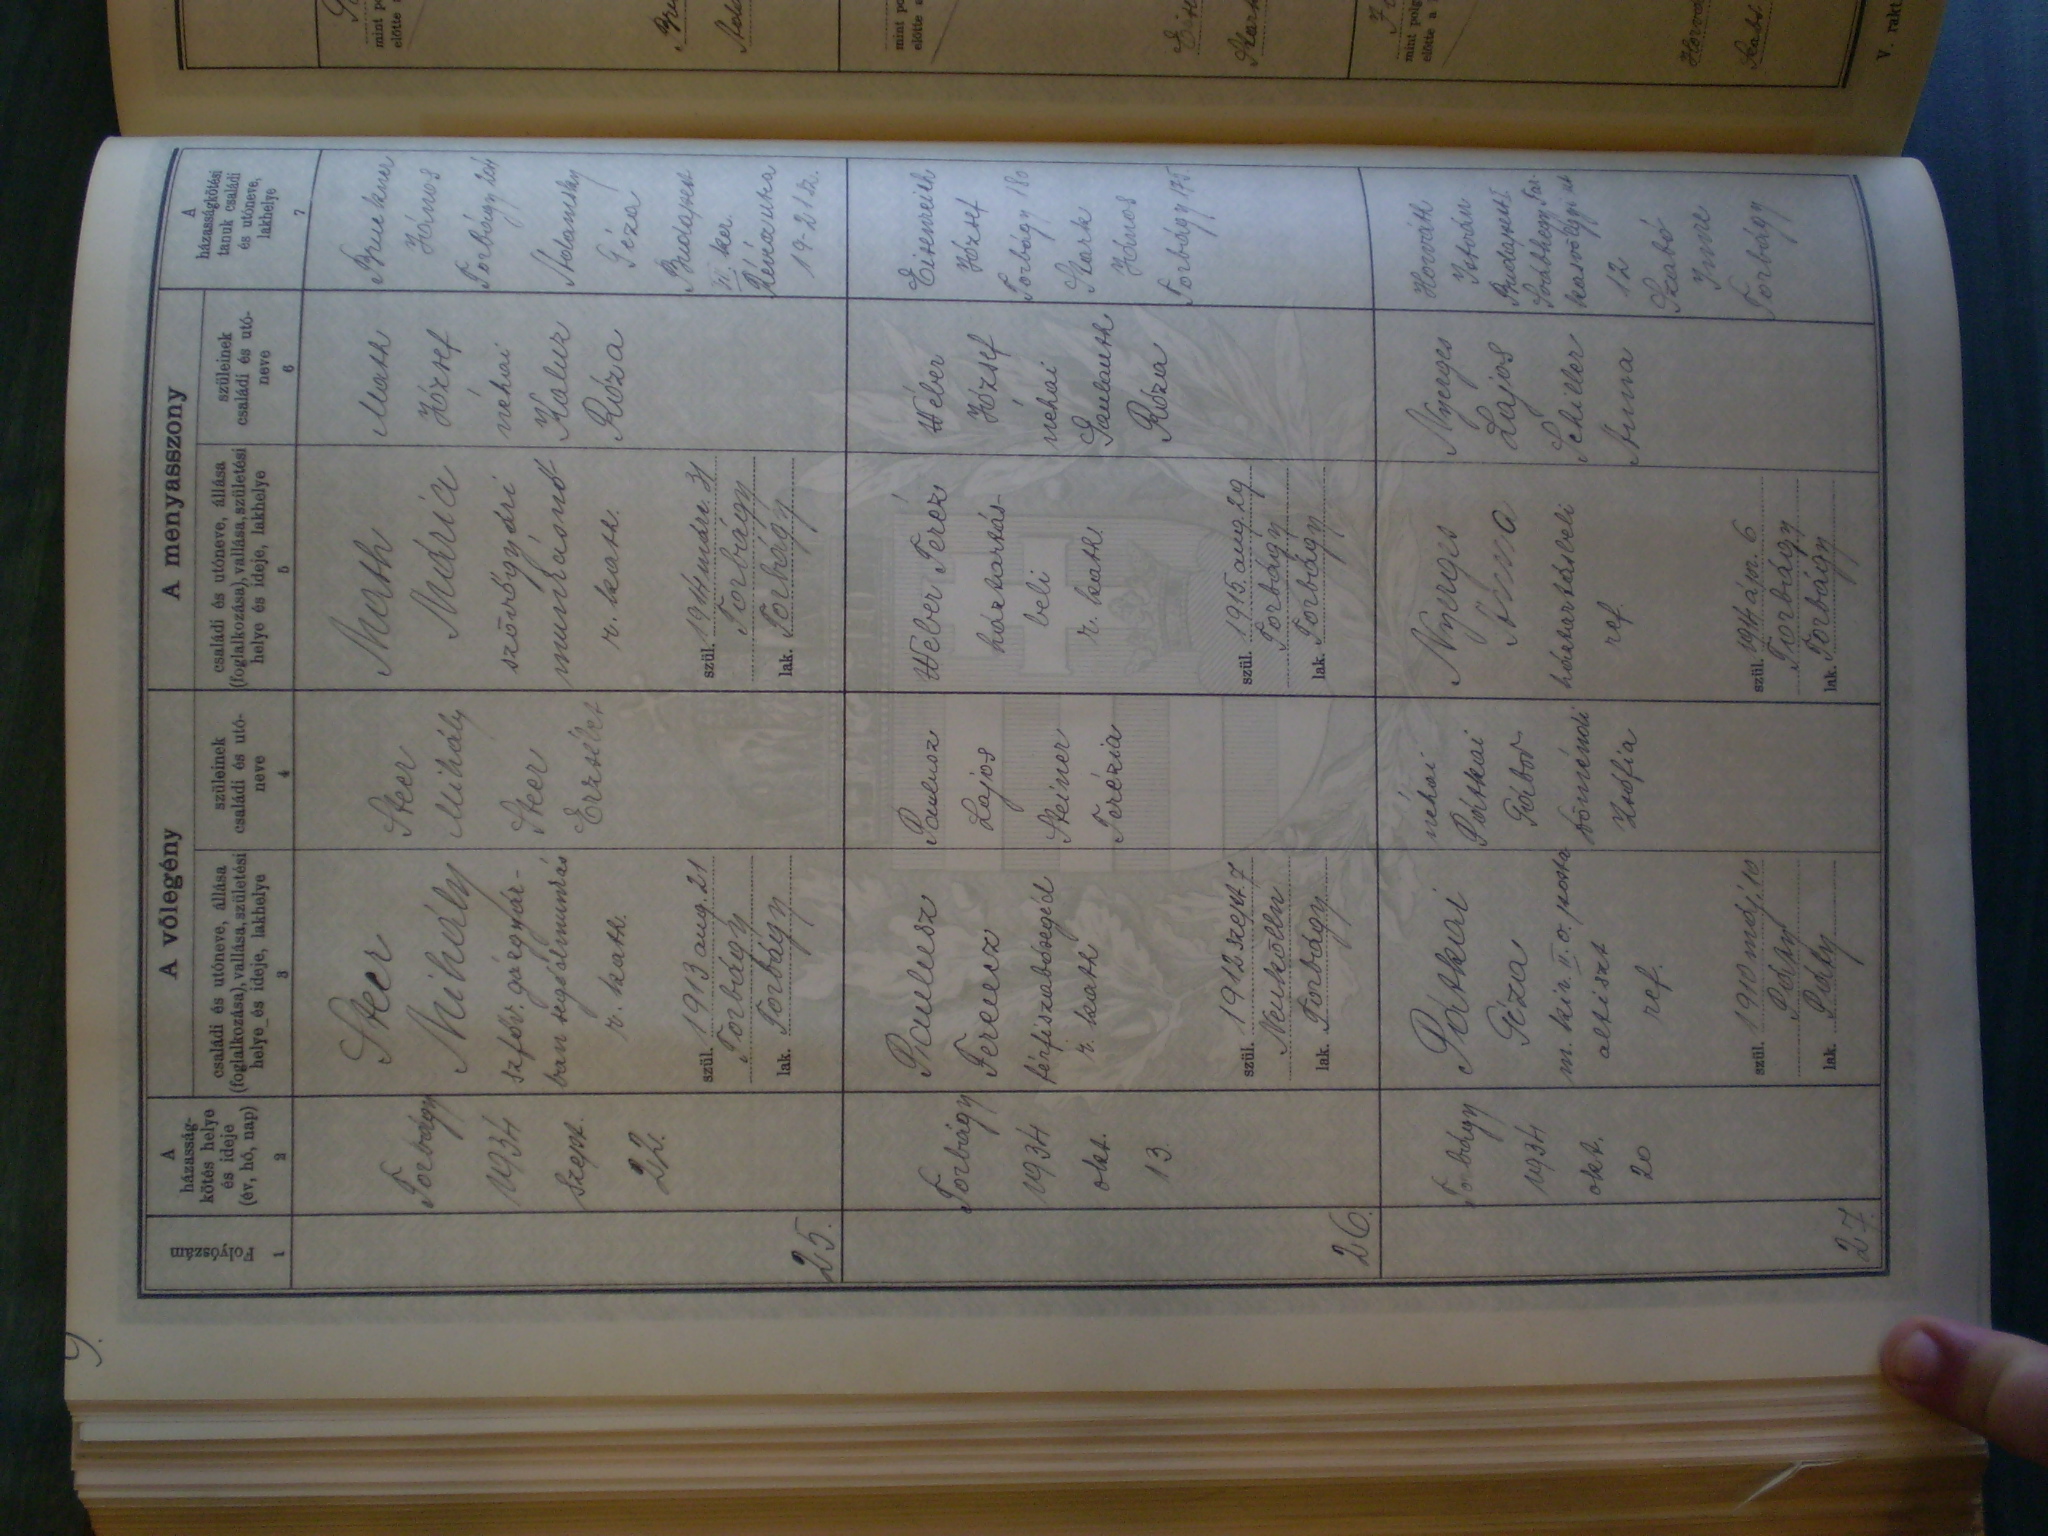 9.
Folyószám
1
A
házasság-
kötés helye
és ideje
(év, hó, nap)
2
A vőlegény
családi és utóneve, állása
(foglalkozása), vallása, születési
helye és ideje, lakhelye
3
szüleinek
családi és utó-
neve
4
A menyasszony
családi és utóneve, állása
(foglalkozása), vallása, születési
helye és ideje, lakhelye
5
szüleinek
családi és utó-
neve
6
A
házasságkötési
tanuk családi
és utóneve,
lakhelye
7
25.
Torbágy
1934
szept.
22.
Steer
Mihály
r. kath.
szül. 1913 aug. 21
Torbágy
lak. Torbágy
Steer
Mihály
Steer
Erzsébet
Math
Mária
szövőgyári
munkásnő
r. kath.
szül. márc. 31
Torbágy
lak. Torbágy
Math
József
néhai
Róza
Bruckner
János
Torbágy
Géza
Budapest
ker.
19-21 sz.
26.
Torbágy
1934
okt.
13.
Paulusz
Ferencz
férfiszabósegéd
r. kath
szül. 1912 szept. 7
Neukölln
lak. Torbágy
Paulusz
Lajos
Steiner
Terézia
Wéber Teréz
háztartás-
beli
r. kath
szül. 1915. aug. 29
Torbágy
lak. Torbágy
Wéber
József
néhai
Róza
József
Torbágy 180
Stark
János
Torbágy 175
27.
Torbágy
1934
okt.
20
Pátkai
Géza
m. kir. II. o. posta
altiszt
ref.
szül. 1910 máj. 10
Páty
lak. Páty
néhai
Pátkai
Gábor
Zsófia
Nyerges
Anna
háztartásbeli
ref.
szül. ápr. 6
Torbágy
lak. Torbágy
Nyerges
Lajos
Schiller
Anna
Horváth
István
Budapest
12
Szabó
Imre
Torbágy
mint po
előtte a
mint po
előtte a
mint polg
előtte a
V. rakt.